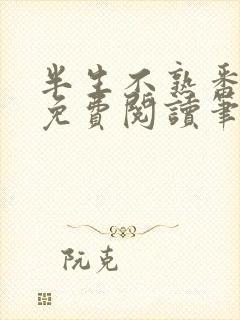 半生不熟番
免費閱讀筆
阮克